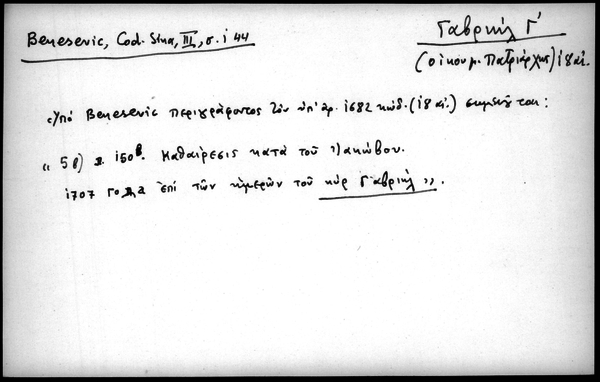 Benesevic, Cod. Sina, III, σ. 144
Γαβριήλ Γ'
(οἰκουμ. Πατριάρχης) 18 αἰ.
Ὑπό Benesevic περιγράφοντος τόν ὑπ' ἀρ. 1682 κώδ. (18 αἰ.) σημειοῦται:
« 5β) л. 150β. Καθαίρεσις κατά τοῦ Ἰακώβου.
1707 года ἐπί τῶν ἡμερῶν τοῦ κύρ Γαβριήλ ».